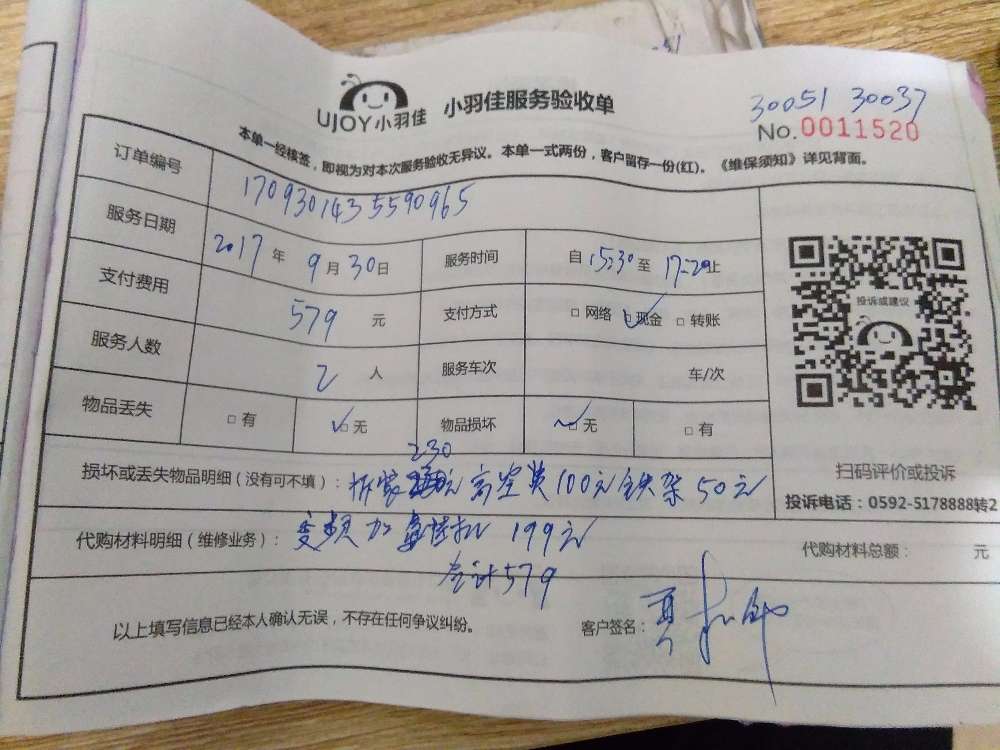 UJOY小羽佳 小羽佳服务验收单
30051 30037
No.0011520
本单一经核签，即视为对本次服务验收无异议。本单一式两份，客户留存一份(红)。《维保须知》详见背面。
订单编号 1709301435590965
服务日期 2017年9月30日 服务时间 自15:30至17-20止
支付费用 579元 支付方式 □网络 □现金 □转账
服务人数 2人 服务车次 车/次
物品丢失 □有 □无 物品损坏 □无 □有
投诉或建议
扫码评价或投诉
投诉电话：0592-5178888转2
230
损坏或丢失物品明细（没有可不填）：拆装 元 高空费100元 铁架50元
代购材料明细（维修业务）：变频加 挂机 199元
代购材料总额： 元
合计579
以上填写信息已经本人确认无误，不存在任何争议纠纷。 客户签名：